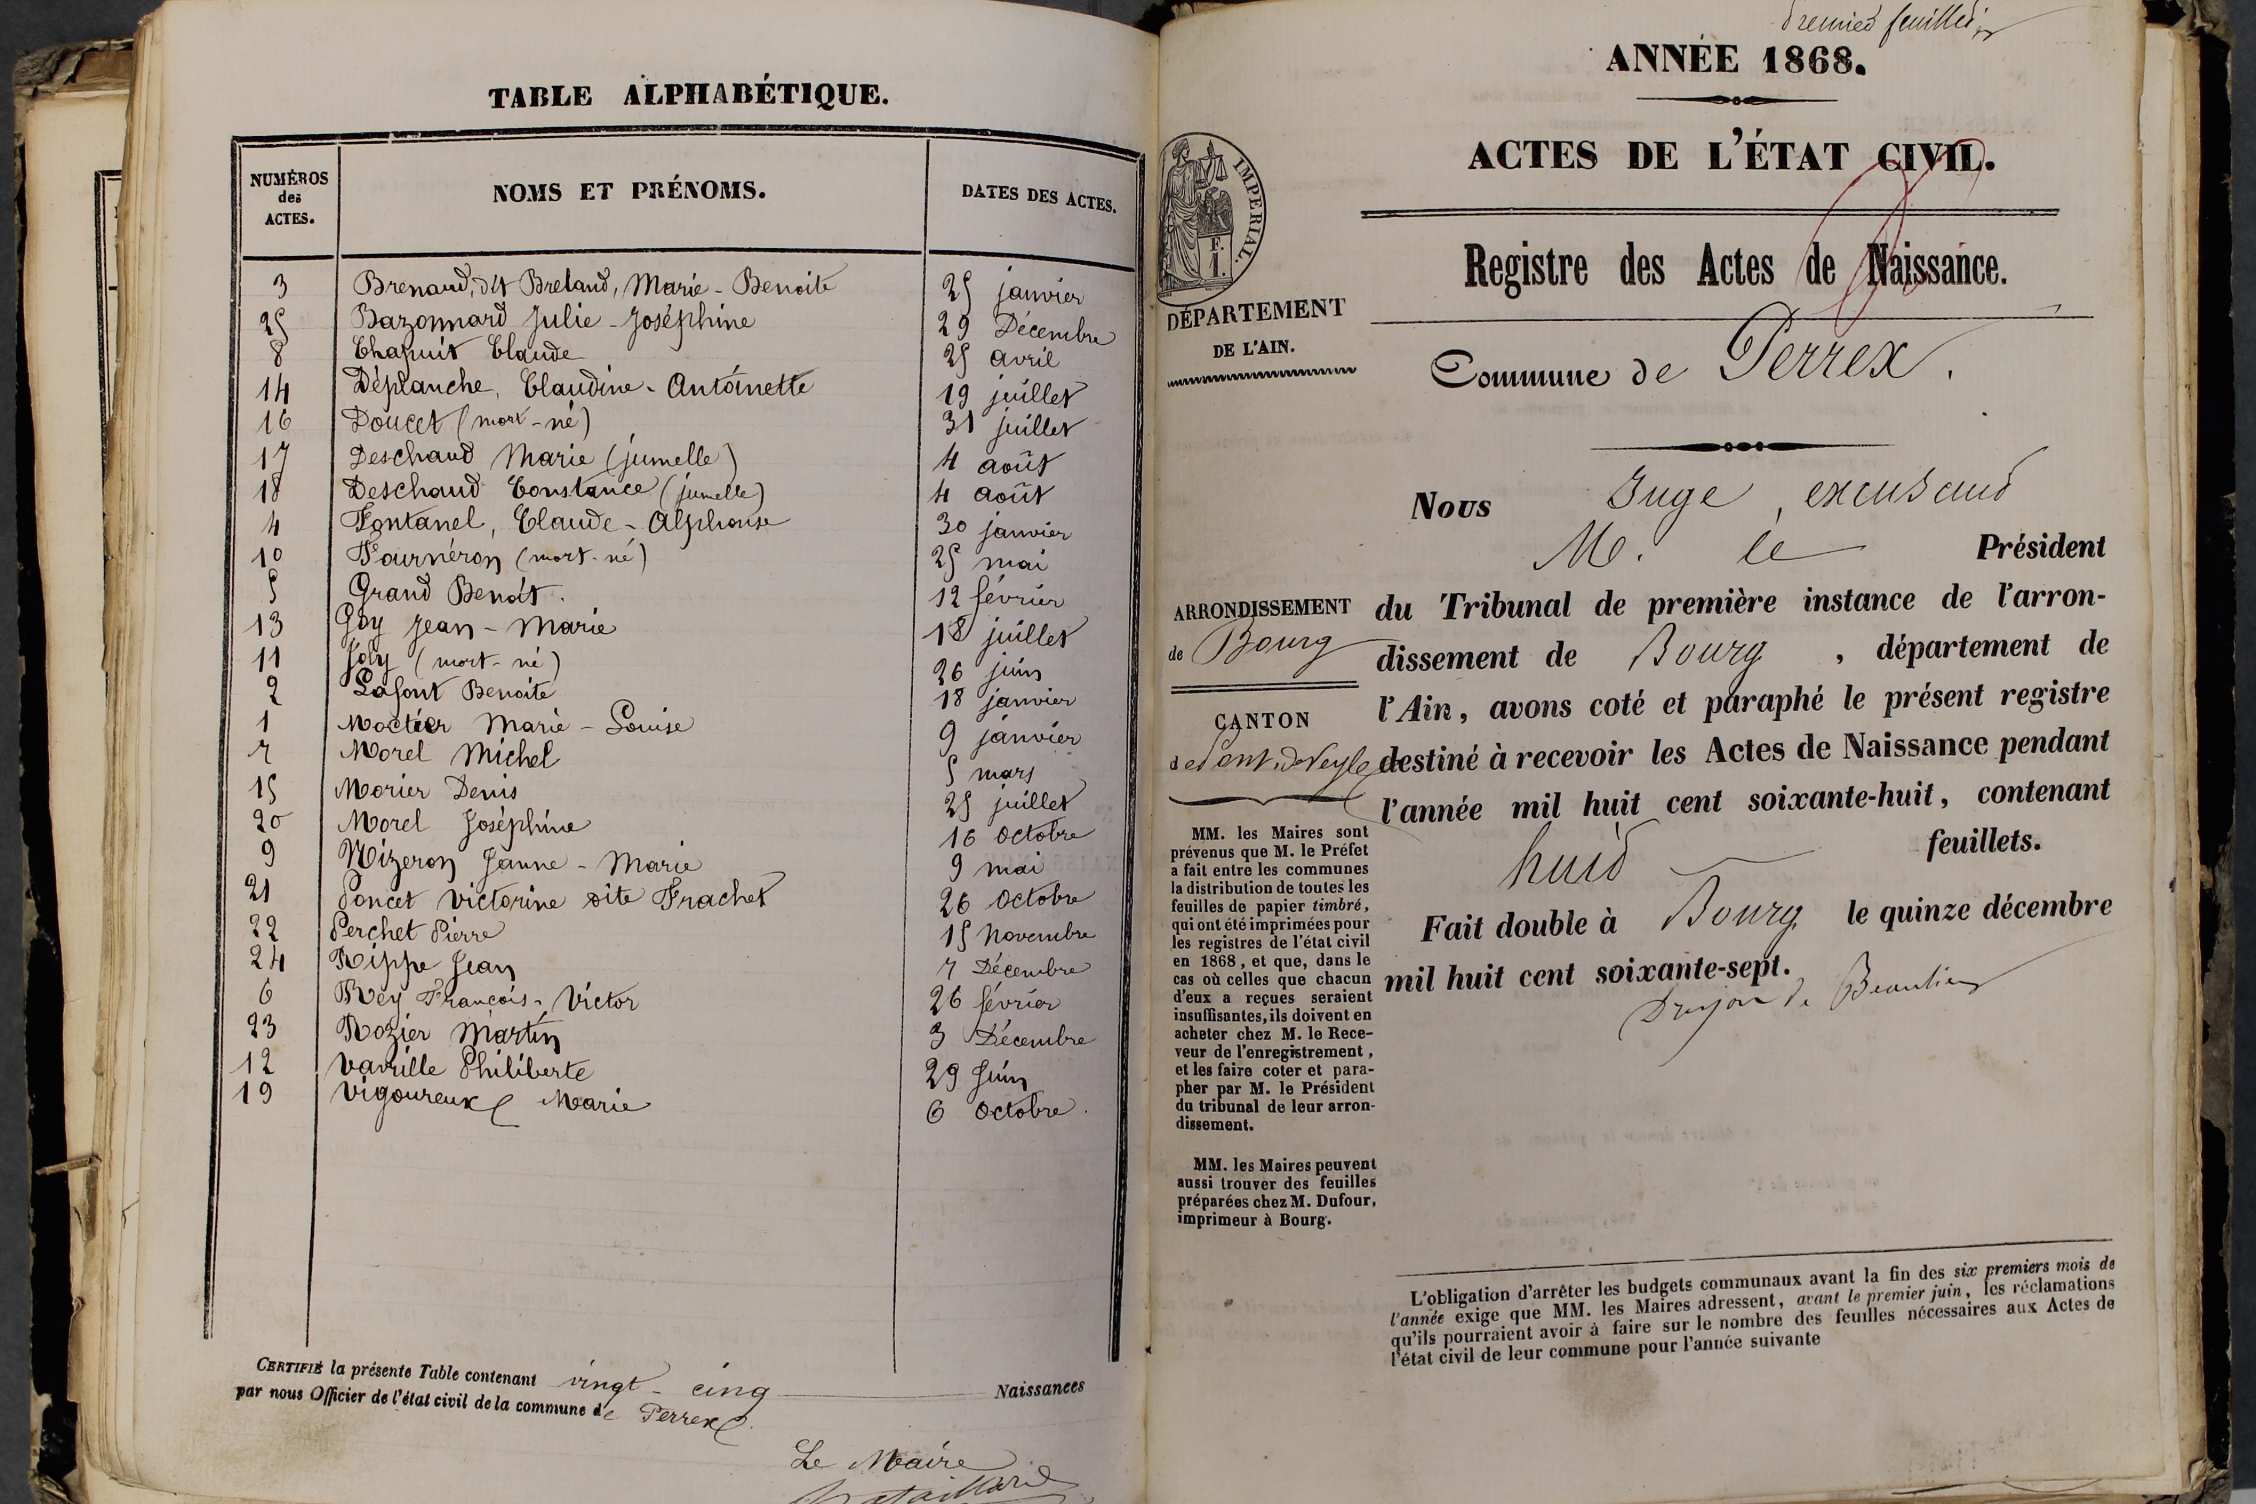 TABLE ALPHABÉTIQUE.
NUMÉROS des ACTES.
NOMS ET PRÉNOMS.
DATES DES ACTES.
3 Brenaud, dit Breland, Marie - Benoite 25 janvier
25 Bazonnard Julie - Joséphine 29 Décembre
8 Chapuit Claude 25 avril
14 Déplanche, Claudine - Antoinette 19 juillet
16 Doucet (mort-né) 31 juillet
17 Deschaud Marie (jumelle) 4 août
18 Deschaud Constance (jumelle) 4 août
4 Fontanel, Claude - Alphonse 30 janvier
10 Fournéron (mort-né) 25 mai
5 Grand Benoît. 12 février
13 Goy Jean - Marie 18 juillet
11 Joly (mort-né) 26 juin
2 Lafont Benoite 18 janvier
1 Moctier Marie - Louise 9 janvier
7 Morel Michel 5 mars
15 Morier Denis 25 juillet
20 Morel Joséphine 16 octobre
9 Nizeron Jeanne - Marie 9 mai
21 Poncet Victorine dite Frachet 26 octobre
22 Perchet Pierre 15 Novembre
24 Rippe Jean 7 Décembre
6 Rey François - Victor 26 février
23 Rozier Martin 3 Décembre
12 Vavrille Philiberte 29 Juin
19 Vigoureux Marie 6 octobre.
CERTIFIÉ la présente Table contenant vingt - cinq Naissances
par nous Officier de l'état civil de la commune de Perrex.
Le Maire
Premier feuillet
ANNÉE 1868.
ACTES DE L'ÉTAT CIVIL.
Registre des Actes de Naissance.
IMPERIAL.
F.
1.
DÉPARTEMENT
DE L'AIN.
Commune de Perrex.
Nous Juge, excusant
M. le Président
ARRONDISSEMENT
de Bourg
du Tribunal de première instance de l'arron-
dissement de Bourg, département de
l'Ain, avons coté et paraphé le présent registre
CANTON
de Pont de Veyle
destiné à recevoir les Actes de Naissance pendant
l'année mil huit cent soixante-huit, contenant
huit feuillets.
Fait double à Bourg le quinze décembre
mil huit cent soixante-sept.
Drujon de Beaulieu
MM. les Maires sont
prévenus que M. le Préfet
a fait entre les communes
la distribution de toutes les
feuilles de papier timbré,
qui ont été imprimées pour
les registres de l'état civil
en 1868, et que, dans le
cas où celles que chacun
d'eux a reçues seraient
insuffisantes, ils doivent en
acheter chez M. le Rece-
veur de l'enregistrement,
et les faire coter et para-
pher par M. le Président
du tribunal de leur arron-
dissement.
MM. les Maires peuvent
aussi trouver des feuilles
préparées chez M. Dufour,
imprimeur à Bourg.
L'obligation d'arrêter les budgets communaux avant la fin des six premiers mois de
l'année exige que MM. les Maires adressent, avant le premier juin, les réclamations
qu'ils pourraient avoir à faire sur le nombre des feuilles nécessaires aux Actes de
l'état civil de leur commune pour l'année suivante